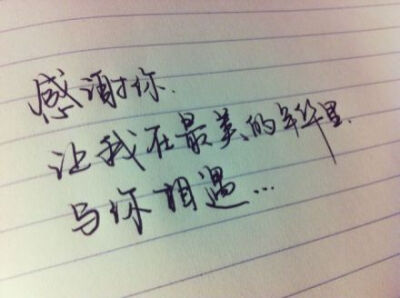 感谢你.
让我在最美的年华里.
与你相遇...